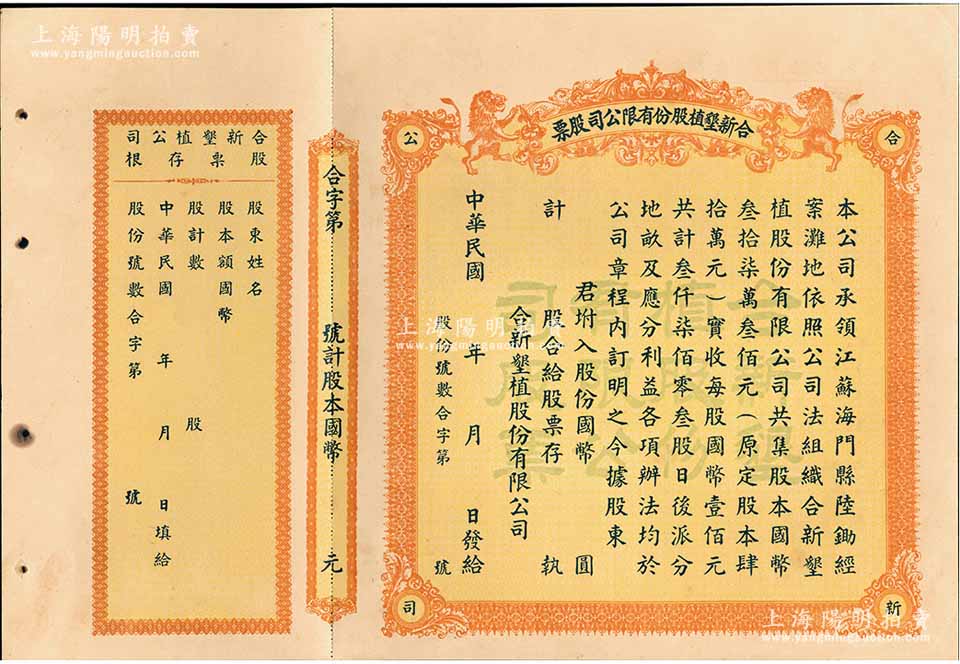 上海陽明拍賣
www.yangmingauction.com
合新墾植股份有限公司股票
合
新
公
司
本公司承領江蘇海門縣陸鋤經
案灘地依照公司法組織合新墾
植股份有限公司共集股本國幣
叁拾柒萬叁佰元（原定股本肆
拾萬元）實收每股國幣壹佰元
共計叁仟柒佰零叁股日後派分
地畝及應分利益各項辦法均於
公司章程內訂明之今據股東
君坿入股份國幣 圓
計 股合給股票存 執
合新墾植股份有限公司
中華民國 年 月 日發給
股份號數合字第 號
合字第 號計股本國幣 元
合新墾植公司
股票存根
股東姓名
股本額國幣
股計數 股
中華民國 年 月 日填給
股份號數合字第 號
合新墾
植股份
有限公
司股票
上海陽明拍賣
www.yangmingauction.com
上海陽明拍賣
www.yangmingauction.com